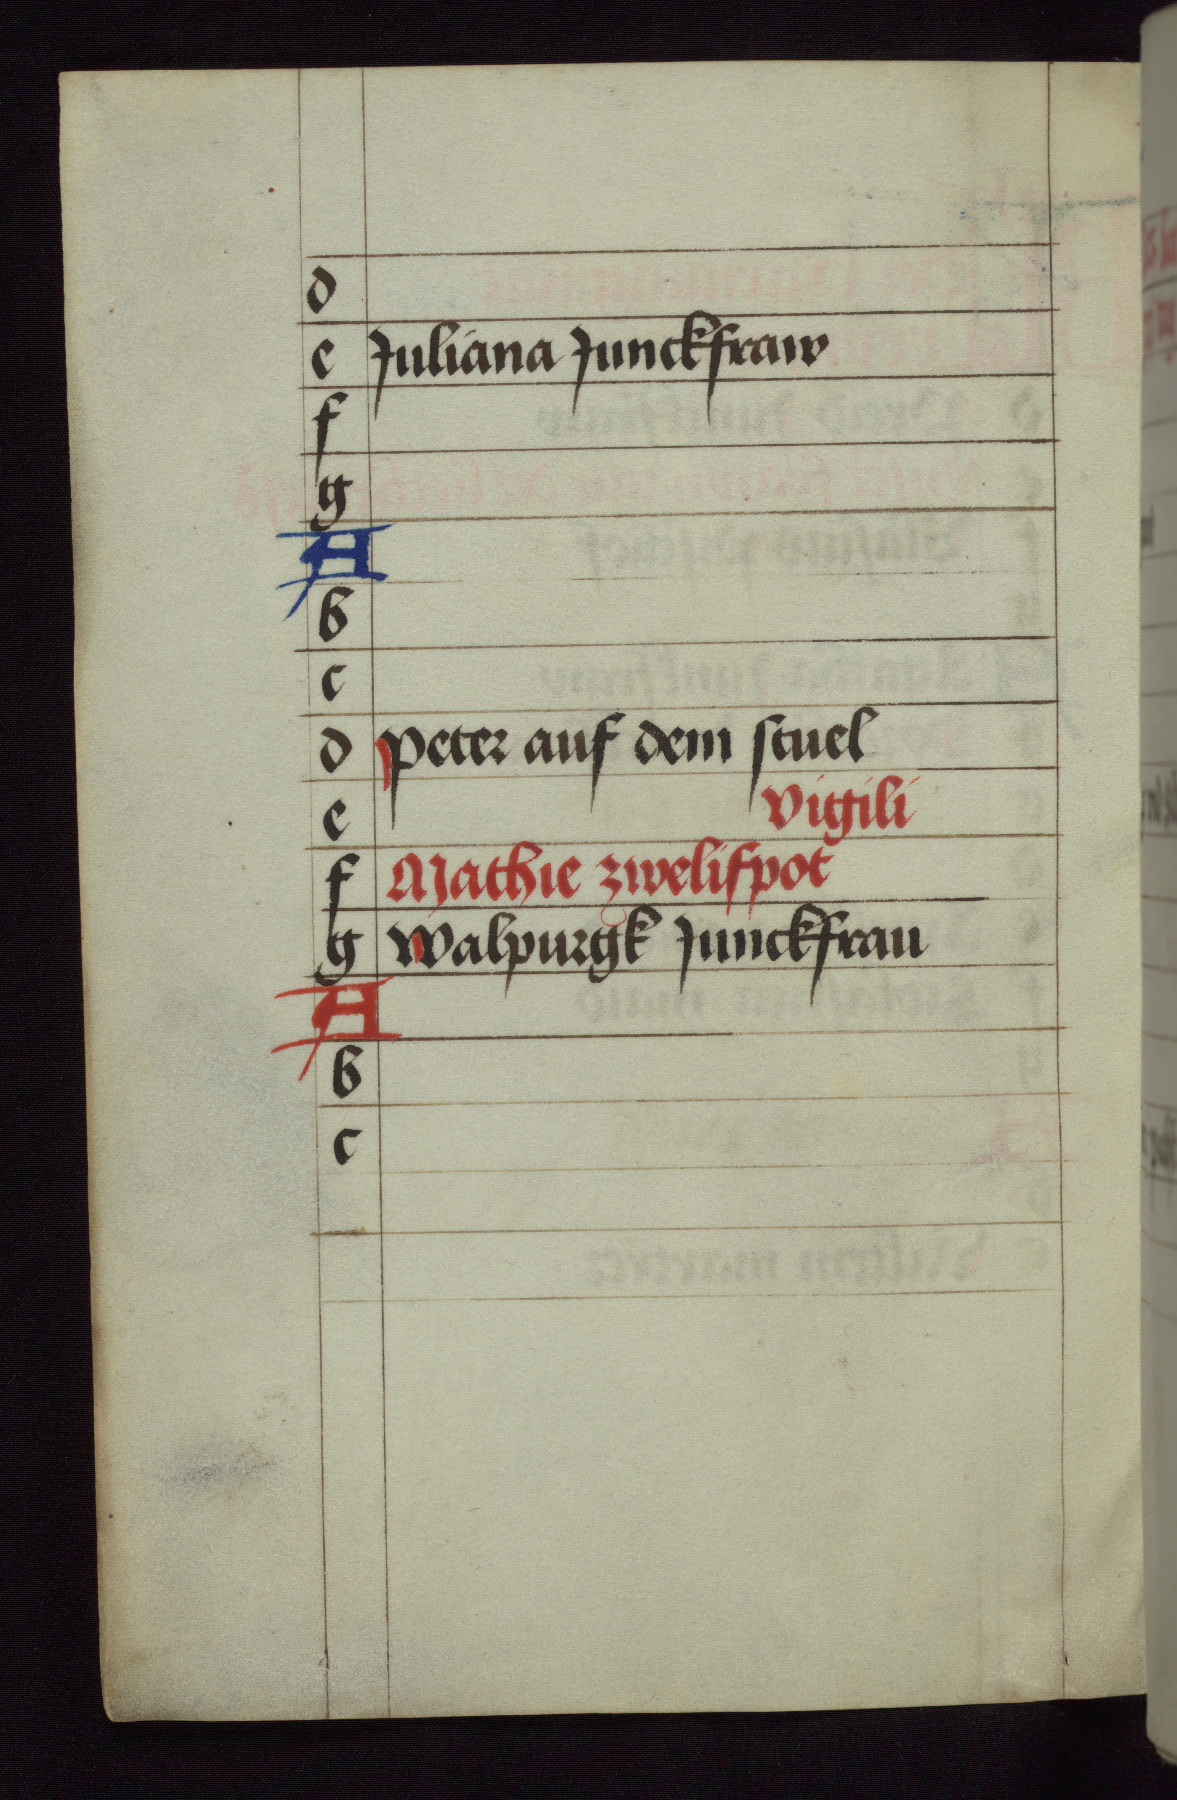 d
e Juliana Junckfraw
f
g
A
b
c
d Peter auf dem stuel
e vigili
f Mathie zwelifpot
g Walpurgk Junckfrau
A
b
c